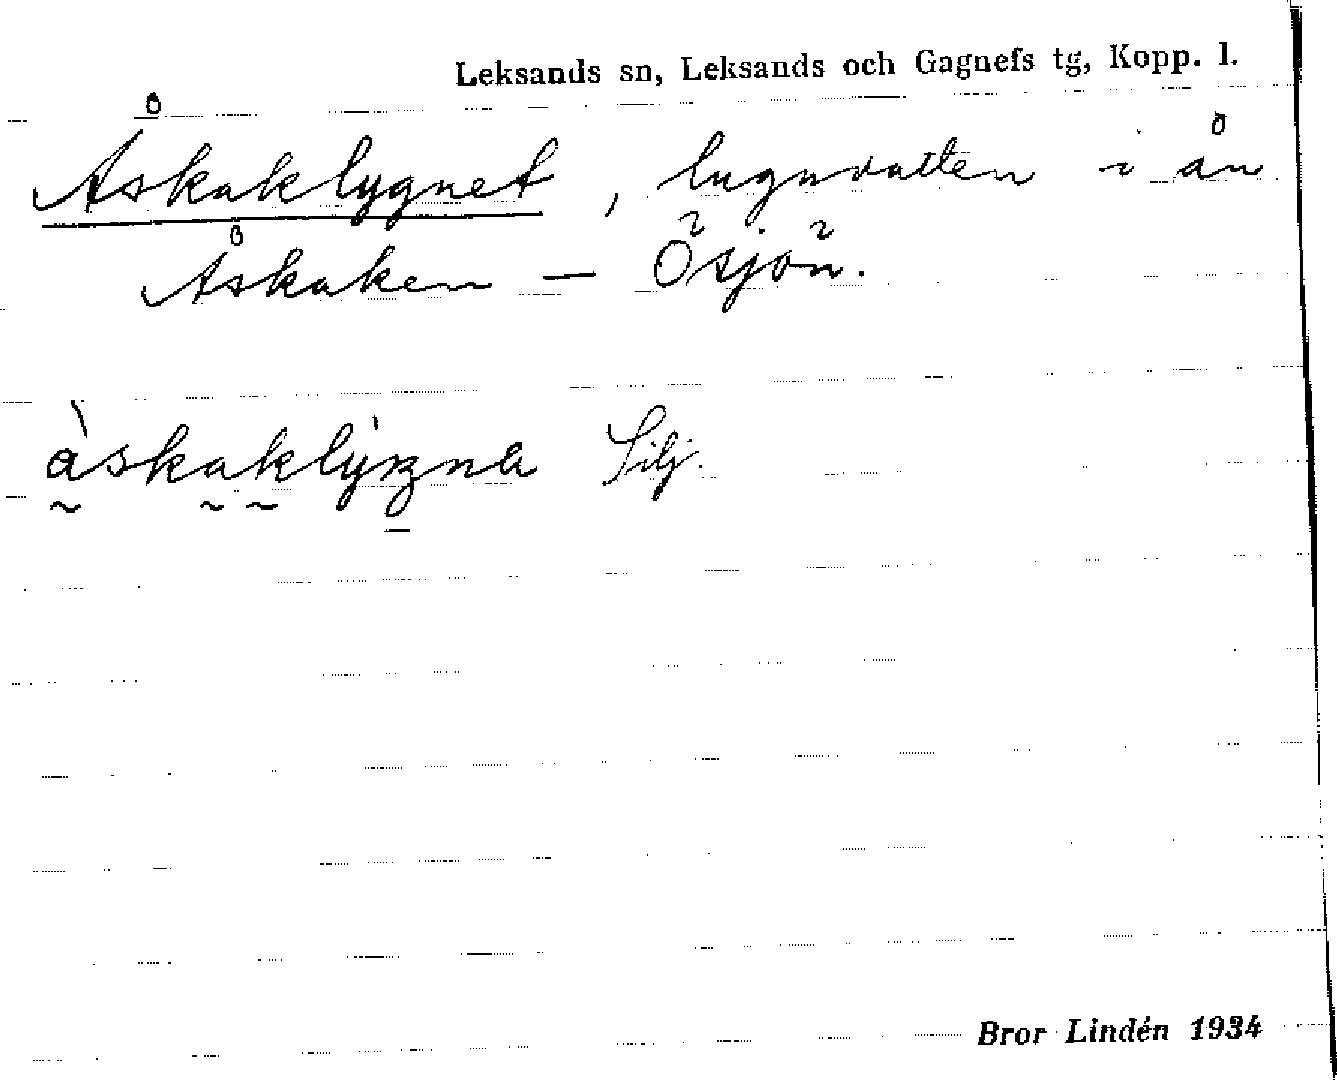 Leksands sn, Leksands och Gagnefs tg, Kopp. l.
Åskaklygnet, lugnvatten i ån
Åskaken — Ösjön.
Silj.
Bror Lindén 1934